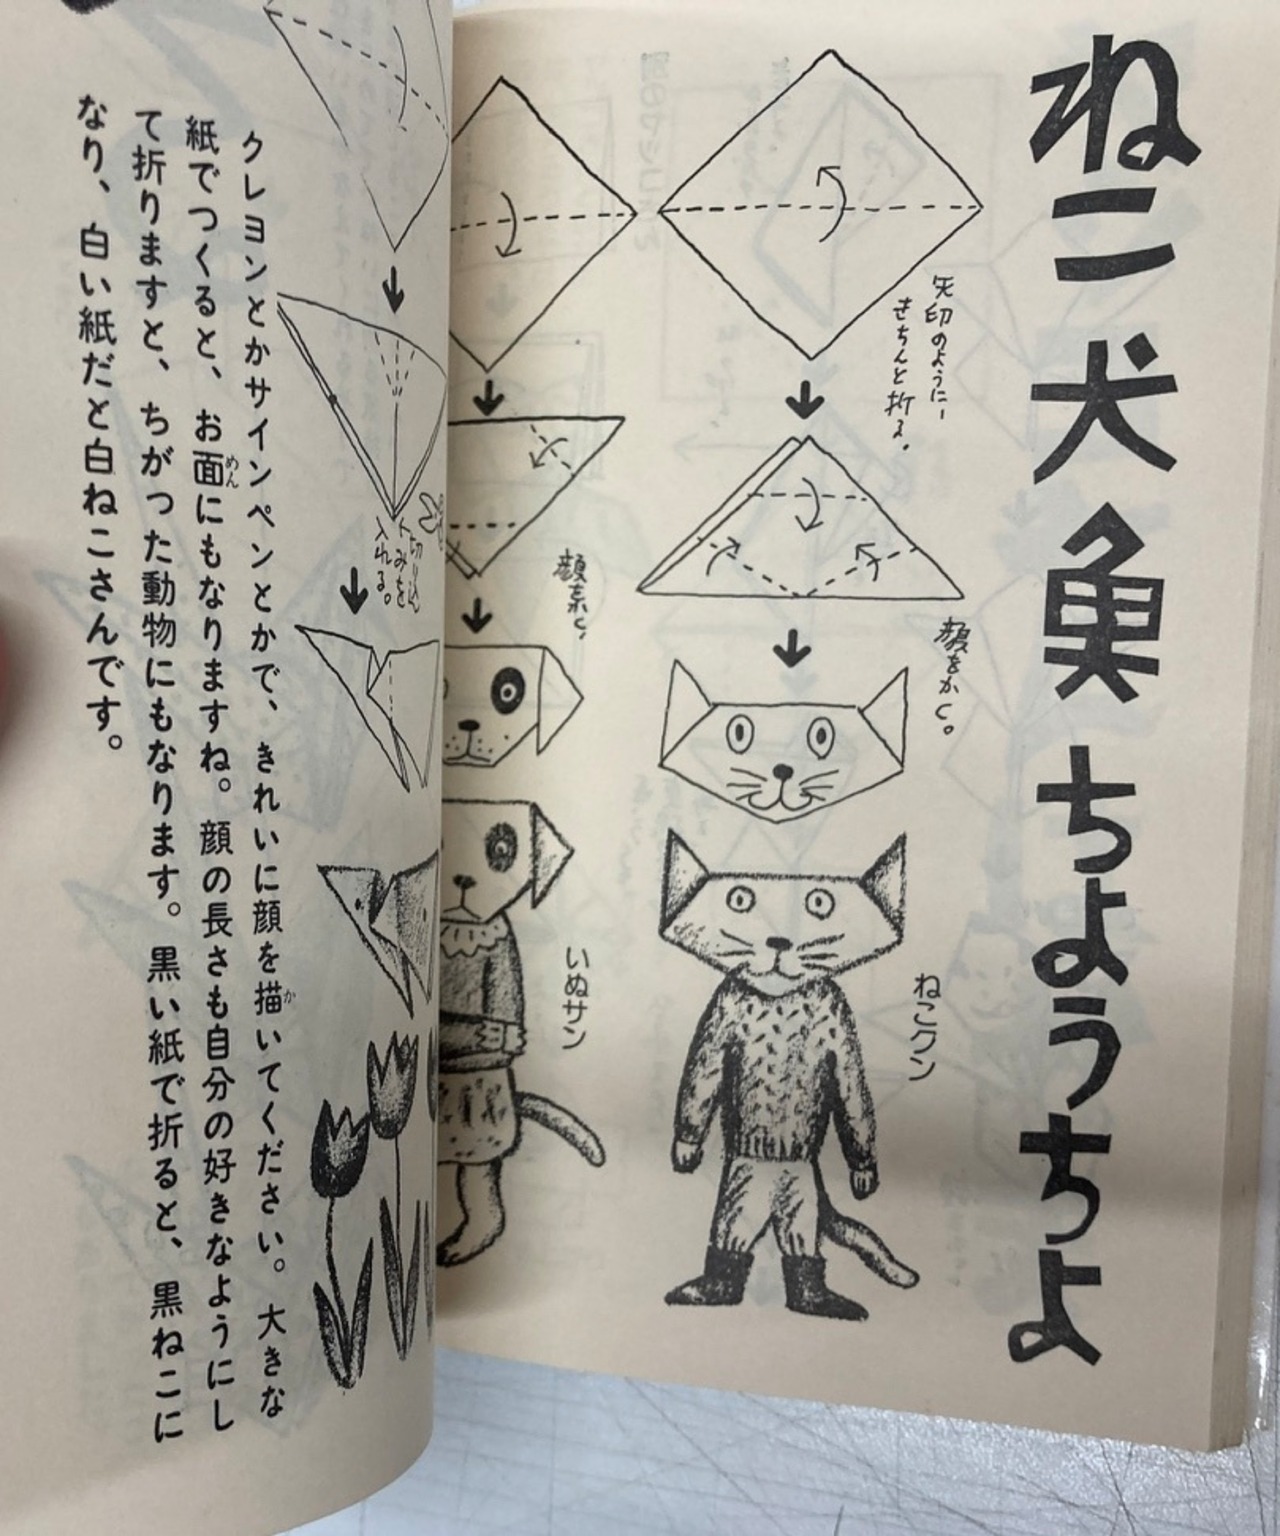 ねこ 犬 魚 ちょうちょ
矢印のように
きちんと折る。
顔をかく。
ねこクン
顔をかく。
いぬサン
切り込
みを
入れる。
クレヨンとかサインペンとかで、きれいに顔を描いてください。大きな
紙でつくると、お面にもなりますね。顔の長さも自分の好きなようにし
て折りますと、ちがった動物にもなります。黒い紙で折ると、黒ねこに
なり、白い紙だと白ねこさんです。